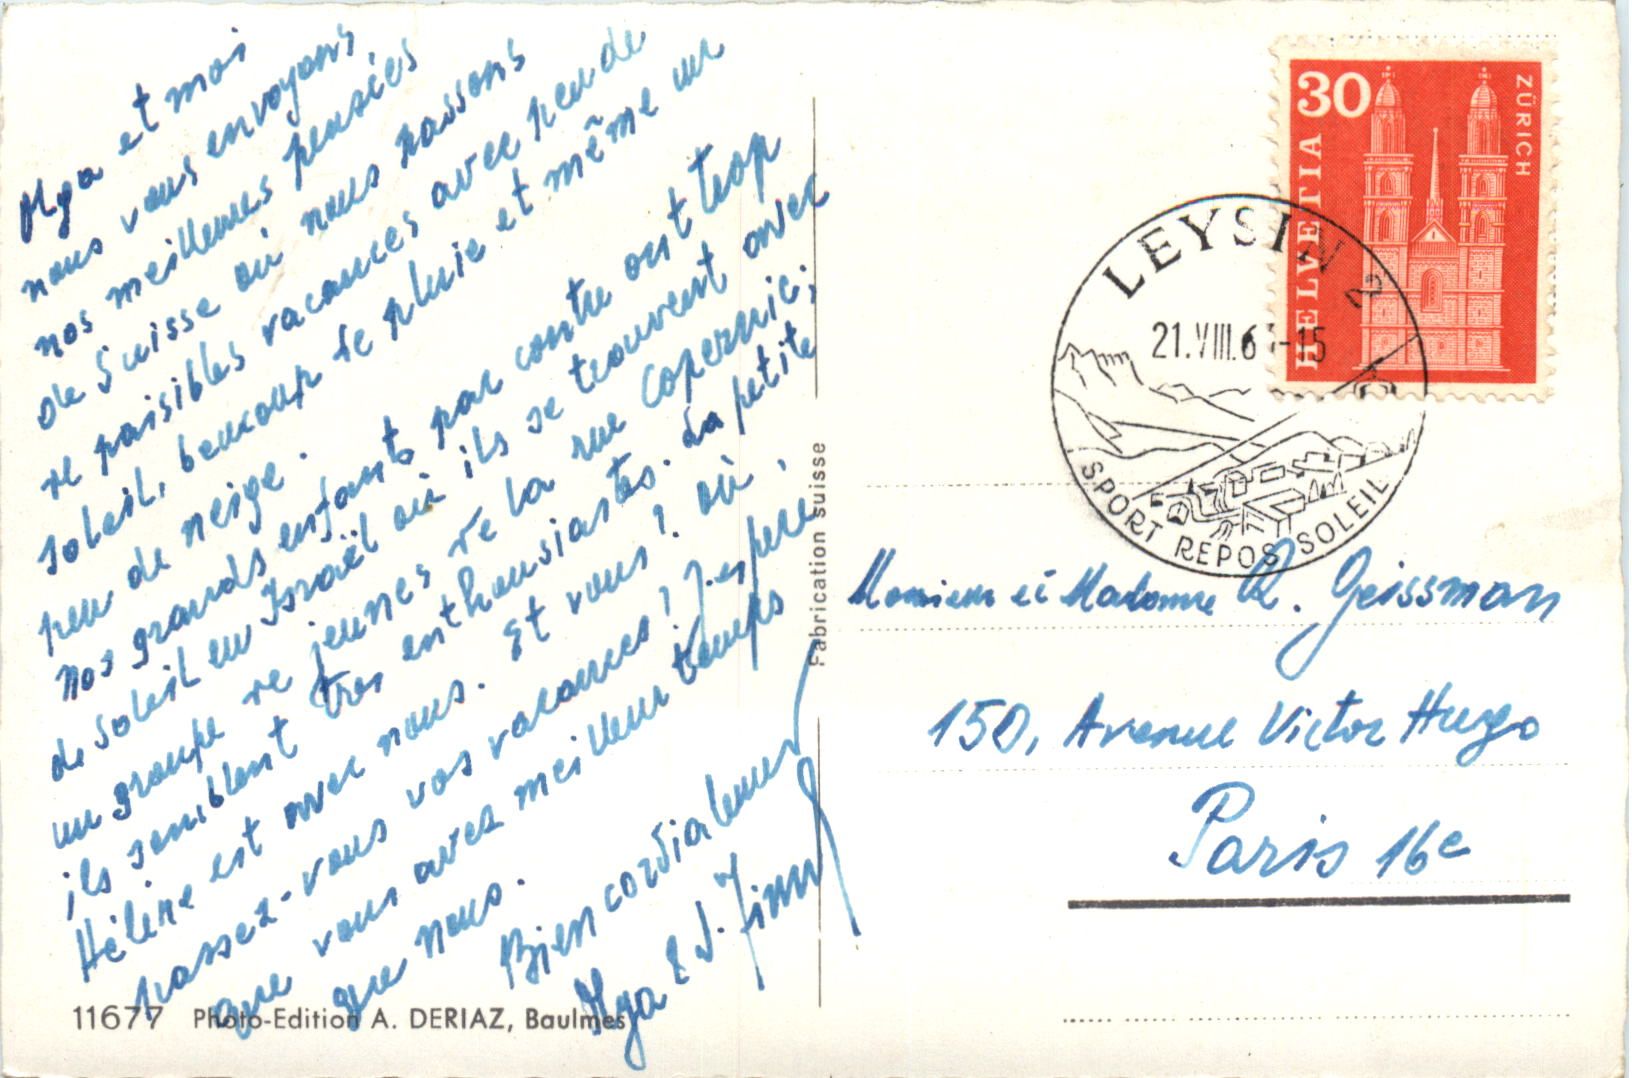 Olga et moi
nous vous envoyons
nos meilleures pensées
de Suisse où nous passons
de paisibles vacances avec peu de
soleil, beaucoup de pluie et même un
peu de neige.
Nos grands enfants par contre ont trop
de soleil en Israël où ils se trouvent avec
un groupe de jeunes de la rue Copernic;
ils semblent très enthousiastes. La petite
Hélène est avec nous. Et vous? où
passez-vous vos vacances? J'espère
que vous avez meilleur temps
que nous.
Bien cordialement
Olga & J.
11677 Photo-Edition A. DERIAZ, Baulmes
Fabrication suisse
30
HELVETIA
ZÜRICH
LEYSIN 2
21.VIII.6 -15
SPORT REPOS SOLEIL
Monsieur et Madame R. Geissman
150, Avenue Victor Hugo
Paris 16e